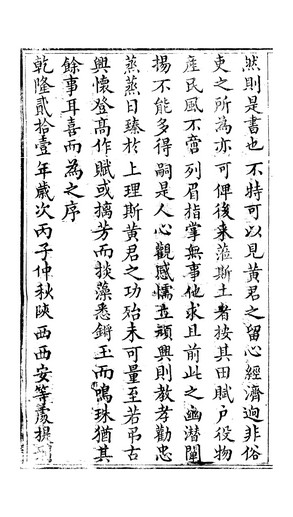 然則是書也不特可以見黃君之留心經濟迥非俗
吏之所為亦可俾後来蒞斯土者按其田賦户役物
産民風不啻列眉指掌無事他求且前此之幽潜闡
揚不能多得嗣是人心觀感懦立頑興則教孝勸忠
蒸蒸日臻於上理斯黃君之功殆未可量至若弔古
興懷登高作賦或摛芳而掞藻悉鏘玉而鳴珠猶其
餘事耳喜而為之序
乾隆貳拾壹年歲次丙子仲秋陝西西安等處提刑